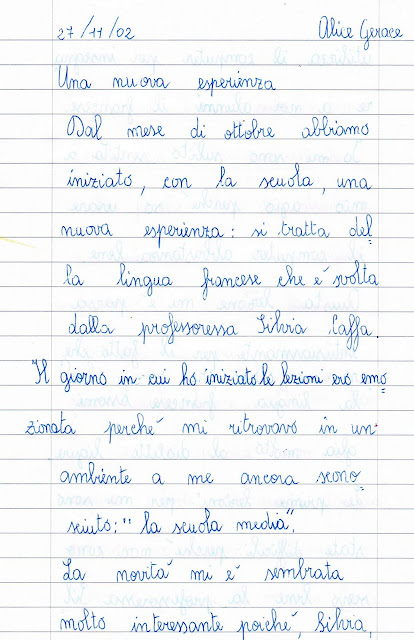 27/11/02 Alice Gerace
Una nuova esperienza
Dal mese di ottobre abbiamo
iniziato, con la scuola, una
nuova esperienza: si tratta del=
la lingua francese che é svolta
dalla professoressa Silvia Caffa.
Il giorno in cui ho iniziato le lezioni ero emo
zionata perché mi ritrovavo in un
ambiente a me ancora scono=
sciuto: "la scuola media".
La novitá mi é sembrata
molto interessante poiché, Silvia,